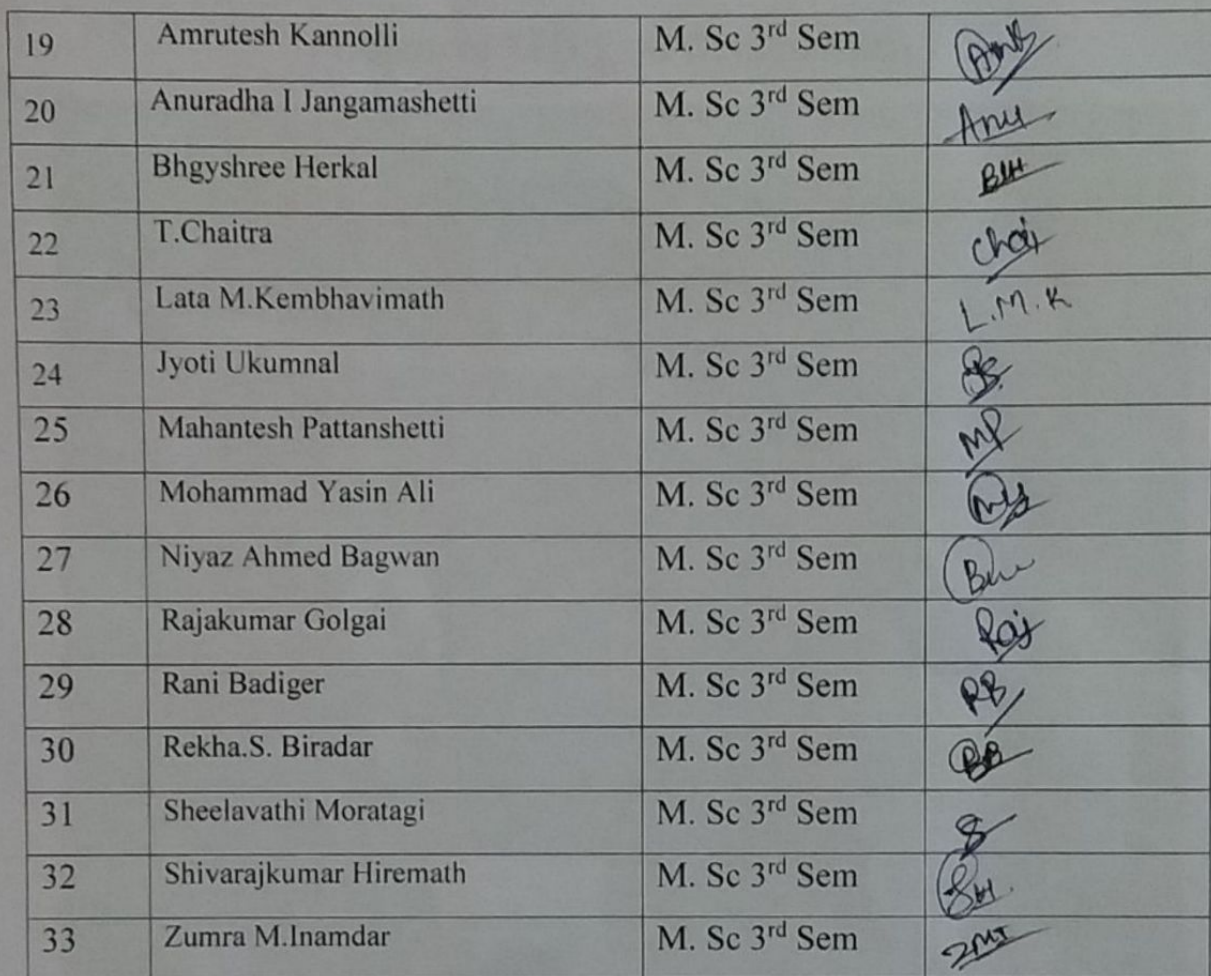 19 Amrutesh Kannolli M. Sc 3rd Sem
20 Anuradha I Jangamashetti M. Sc 3rd Sem Anu
21 Bhgyshree Herkal M. Sc 3rd Sem BH
22 T.Chaitra M. Sc 3rd Sem Chai
23 Lata M.Kembhavimath M. Sc 3rd Sem L.M.K
24 Jyoti Ukumnal M. Sc 3rd Sem
25 Mahantesh Pattanshetti M. Sc 3rd Sem MP
26 Mohammad Yasin Ali M. Sc 3rd Sem
27 Niyaz Ahmed Bagwan M. Sc 3rd Sem
28 Rajakumar Golgai M. Sc 3rd Sem Raj
29 Rani Badiger M. Sc 3rd Sem RB
30 Rekha.S. Biradar M. Sc 3rd Sem
31 Sheelavathi Moratagi M. Sc 3rd Sem
32 Shivarajkumar Hiremath M. Sc 3rd Sem SH
33 Zumra M.Inamdar M. Sc 3rd Sem ZMI